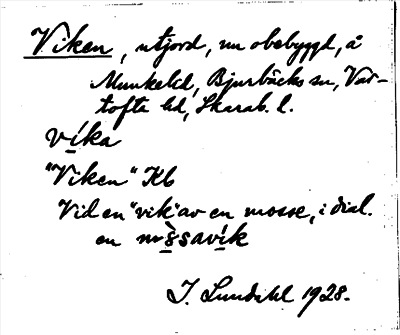 Viken, utjord, nu obebyggd, å
Munkeld, Bjurbäcks sn, Var-
tofta hd, Skarab. l.
víka
"Viken" Kb
Vid en "vik" av en mosse, i dial.
en mòsavík
I. Lundahl 1928.